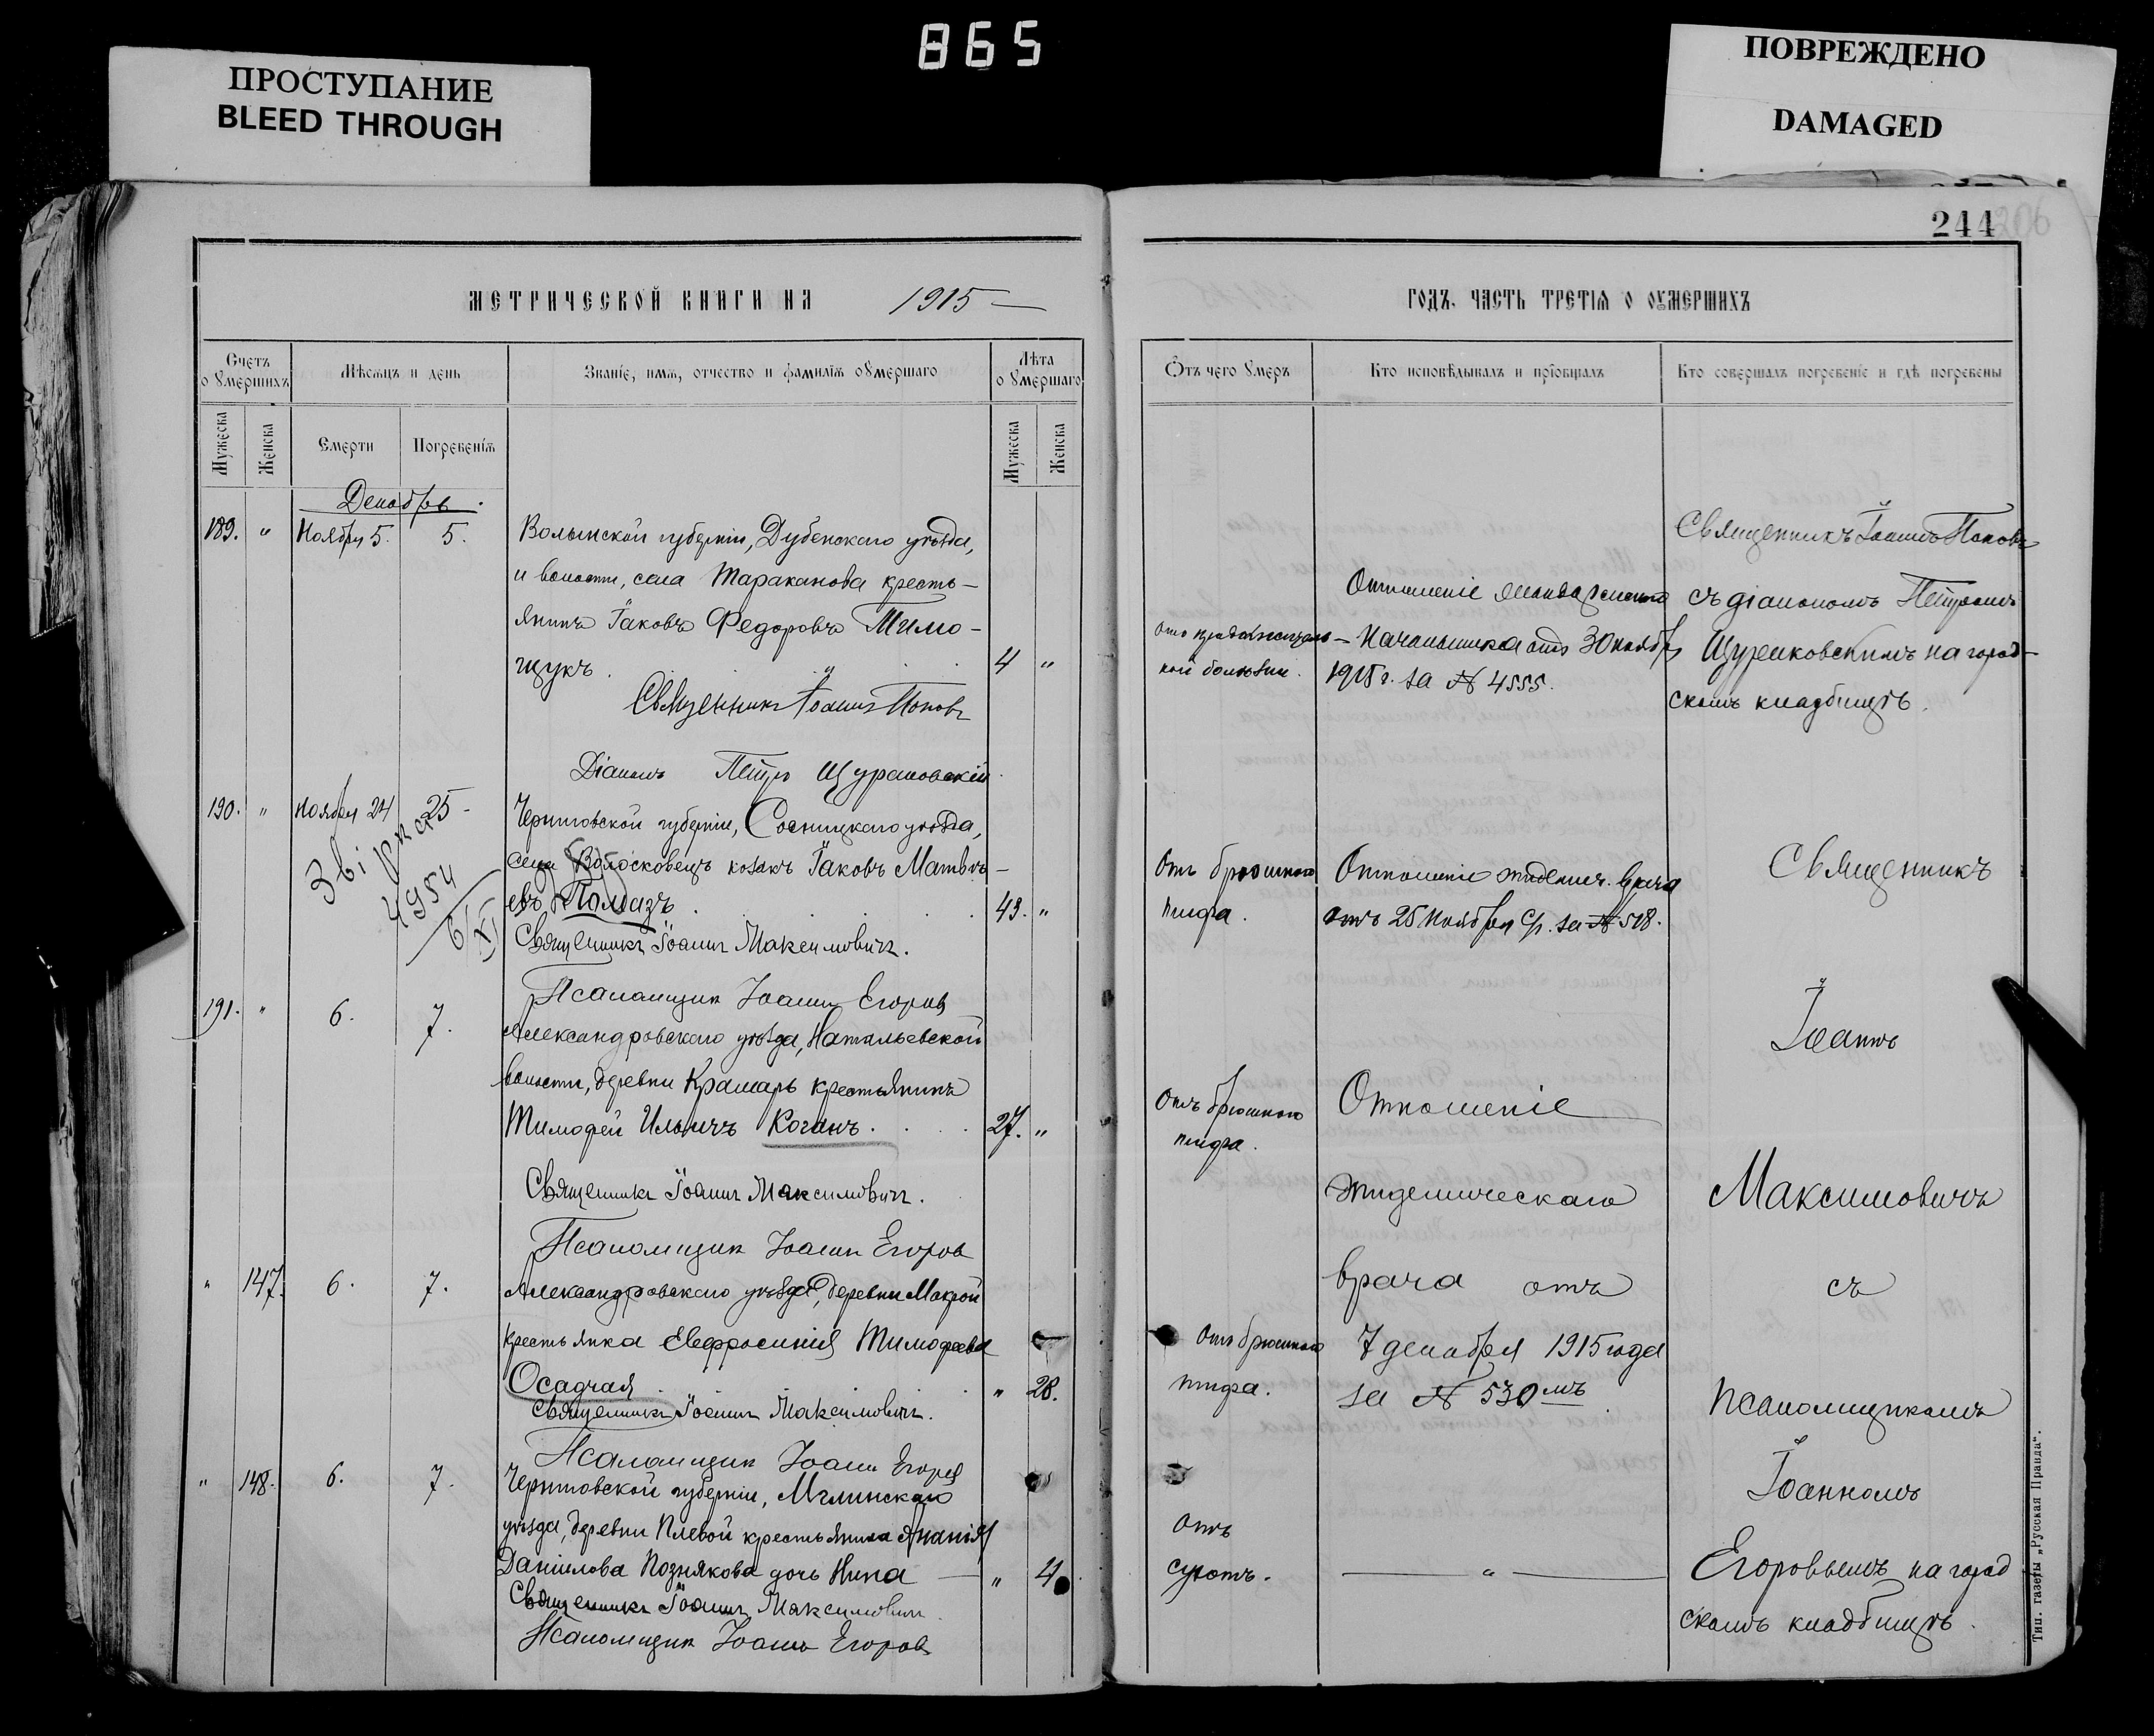 865
ПРОСТУПАНИЕ
BLEED THROUGH
ПОВРЕЖДЕНО
DAMAGED
244
206
МЕТРИЧЕСКОЙ КНИГИ НА 1915
ГОДЪ. ЧАСТЬ ТРЕТІѦ О ОУМЕРШИХЪ
Счетъ о умершихъ
Мѣсѧцъ и день
Званіе, имѧ, отчество и фамиліѧ оумершаго
Лѣта оумершаго
Ѿтъ чего умеръ
Кто исповѣдывалъ и пріобщалъ
Кто совершалъ погребеніе и гдѣ погребены
Мужеска
Женска
Смерти
Погребеніѧ
Мужеска
Женска
Декабрь.
189. " Ноября 5. 5.
Волынской губерніи, Дубенскаго уѣзда,
и волости, села Тараканова кресть-
янинъ Іаковъ Федоровъ Тимо-
щукъ. 4 "
Священникъ Іоаннъ Поповъ
Діаконъ Петръ
кой болѣзни.
Отношеніе
Начальника отъ 30 ноября
1915 г. за № 4555.
Священникъ Іоаннъ Поповъ
съ діакономъ Петромъ
на город-
скомъ кладбищѣ.
190. " Ноября 24 25
Звірка
4954
6/XI
Черниговской губерніи, Сосницкаго уѣзда,
села Волосковецъ козакъ Іаковъ Матвѣ-
евъ Помазъ 43. "
Священникъ Іоаннъ Максимовичъ.
Псаломщикъ Іоаннъ Егоровъ
Отъ брюшного
тифа.
Отношеніе эпидемич. врача
отъ 25 Ноября с/г. за № 518.
Священникъ
Іоаннъ
191. " 6. 7.
Александровскаго уѣзда, Натальевской
волости, деревни Крамарь крестьянинъ
Тимофей Ильичъ Коганъ. 27. "
Священникъ Іоаннъ Максимовичъ.
Псаломщикъ Іоаннъ Егоровъ
Отъ брюшного
тифа.
Отношеніе
эпидемическаго
врача отъ
7 декабря 1915 года
за № 530мъ
Максимовичъ
съ
псаломщикомъ
" 147. 6. 7.
Александровскаго уѣзда, деревни Мокрой
крестьянка Евфросинія Тимофеева
Осадчая " 28.
Священникъ Іоаннъ Максимовичъ.
Псаломщикъ Іоаннъ Егоровъ
Отъ брюшного
тифа.
" 148. 6. 7.
Черниговской губерніи, Мглинскаго
уѣзда, деревни Плевой крестьянина Ананія
Даніилова Познякова дочь Нина " 4
Священникъ Іоаннъ Максимовичъ
Псаломщикъ Іоаннъ Егоровъ
Отъ
"
Іоанномъ
Егоровымъ на город
скомъ кладбищѣ.
Тип. газеты „Русская Правда".